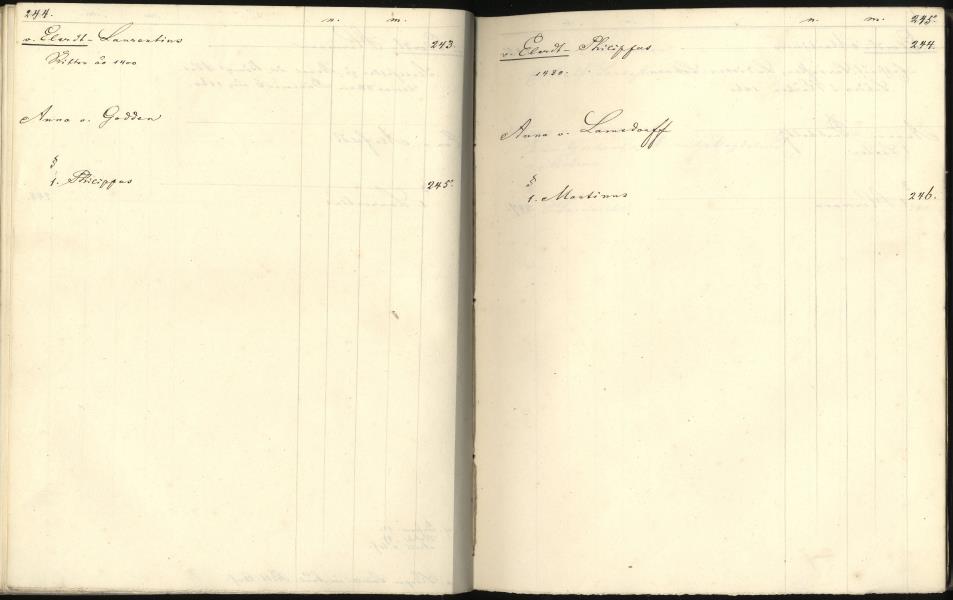 244.
n. m.
v. Elerdt- Laurentius 243.
Ritter ao 1400
Anna v. Godden
§
1. Philippus 245.
n. m. 245.
v. Elerdt- Philippus 244.
1430.
Anna v. Lamsdorff
§
1. Martinus 246.